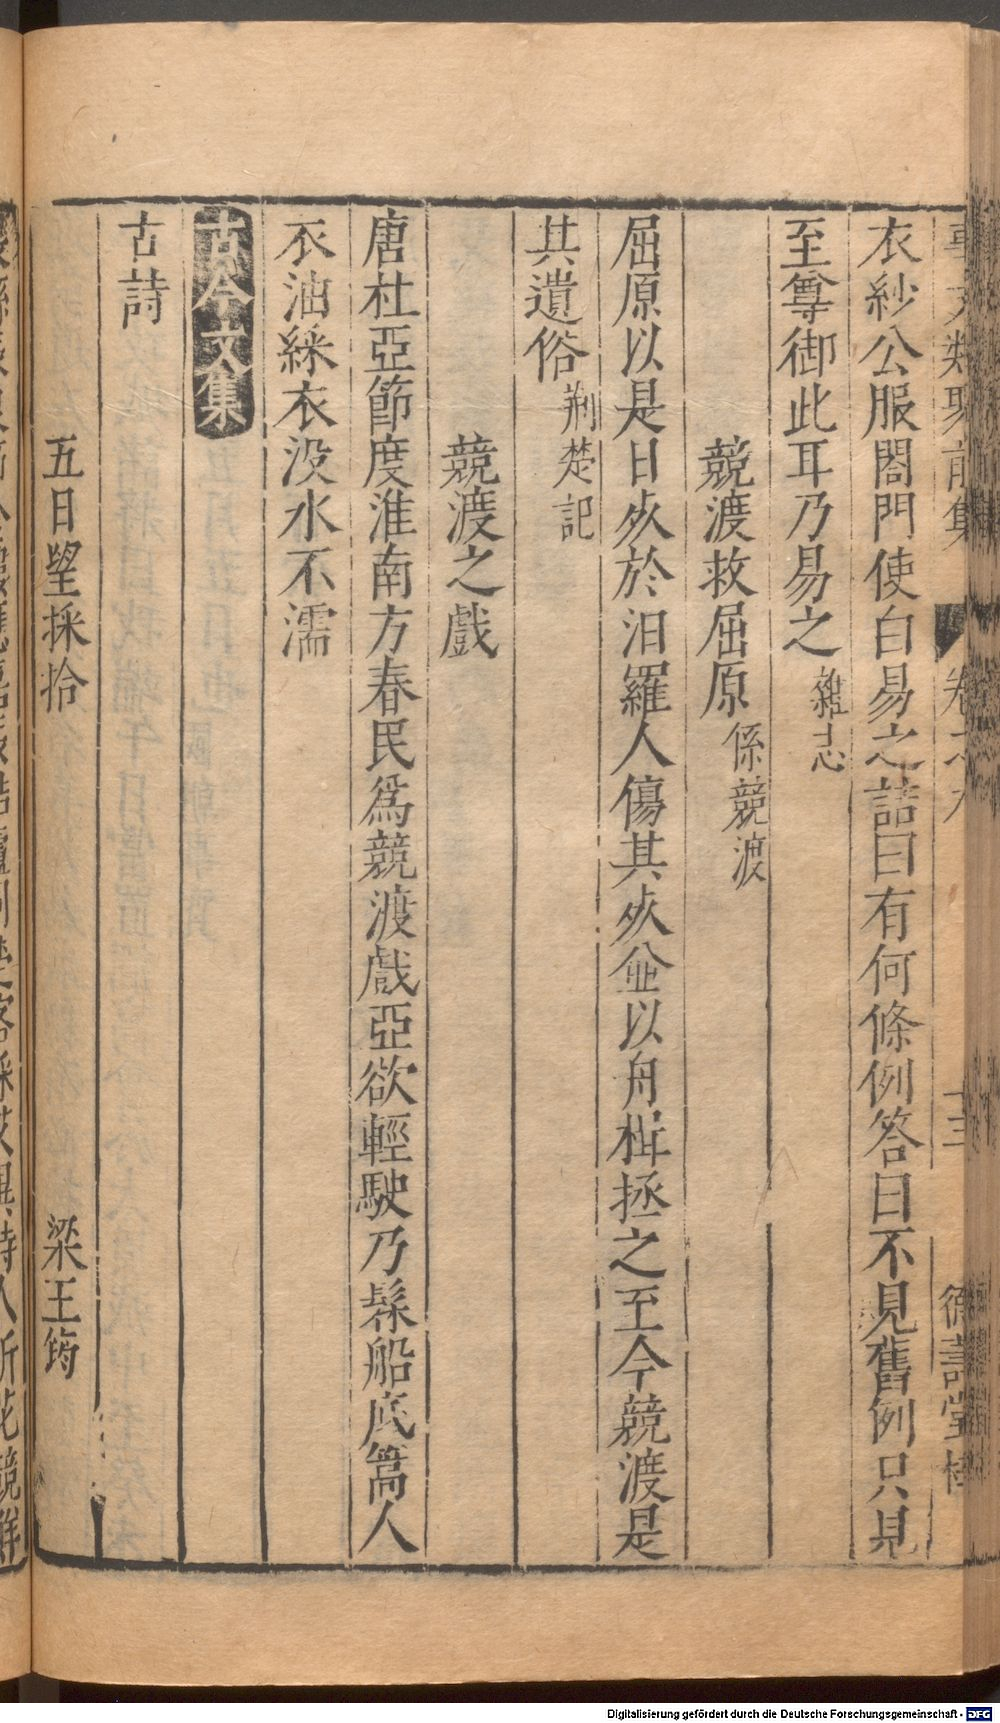 事文類聚前集 卷之九 十三
衣紗公服閤門使白易之詰曰有何條例答曰不見舊例只見
至尊御此耳乃易之雜志
競渡救屈原係競渡
屈原以是日死於汨羅人傷其死並以舟楫拯之至今競渡是
其遺俗荆楚記
競渡之戲
唐杜亞節度淮南方春民爲競渡戲亞欲輕駛乃髹船底篙人
衣油綵衣没水不濡
古今文集
古詩
五日望採拾 梁王筠
Digitalisierung gefördert durch die Deutsche Forschungsgemeinschaft - DFG